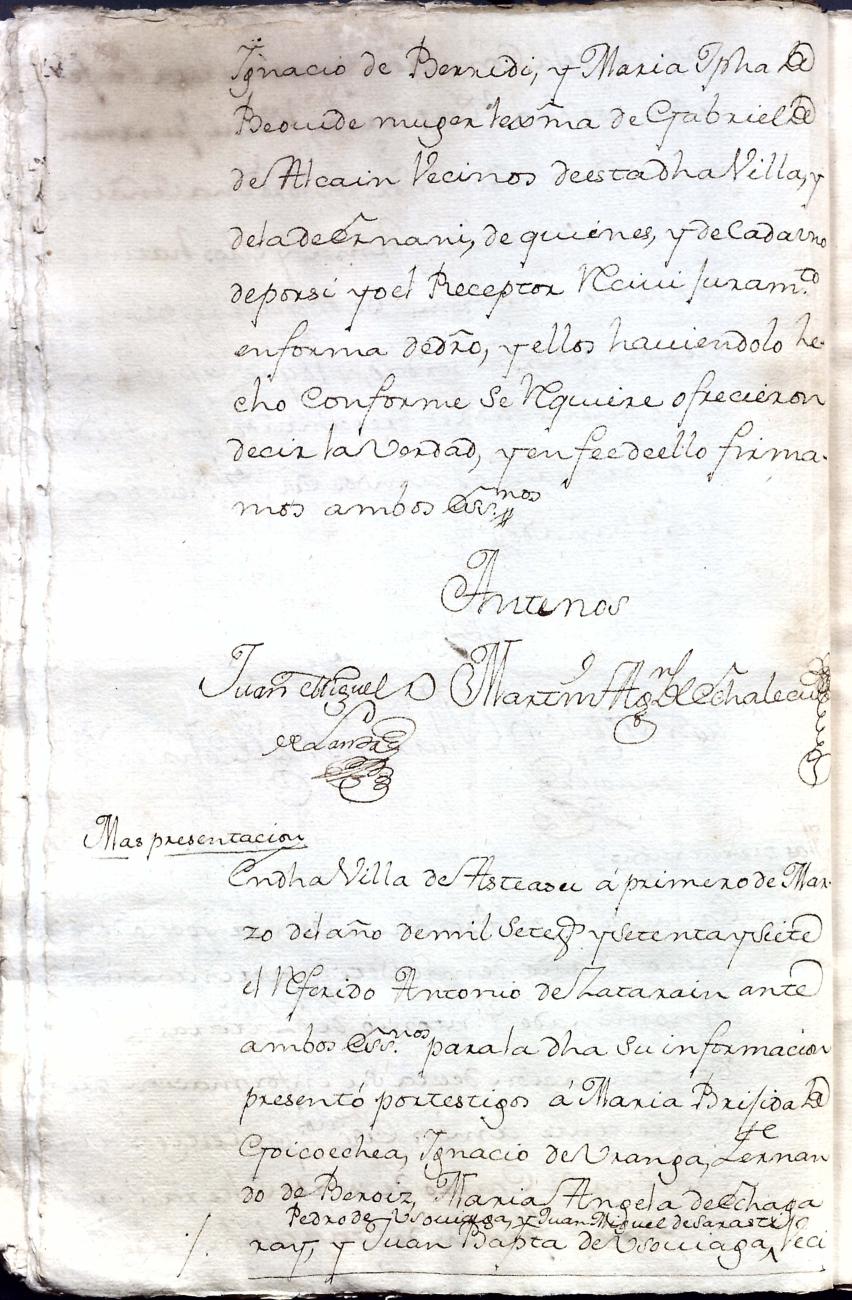 Ignacio de Berridi, y Maria Jpha de
Beovide muger lexma de Gabriel de
de Alcain Vecinos deesta dha Villa, y
dela de Ernani, de quienes, y de Cada uno
deporsi yo el Receptor Reciui juramto
enforma dedro, y ellos hauiendolo he-
cho Conforme Se Requiere ofrecieron
decir la Verdad, y en fee deello firma-
mos ambos Essnos
Antenos
Juan Miguel Martin Agn de Echalecu
de Landa
Mas presentacion
En dha Villa de Asteasu á primero de Mar-
zo del año demil Setezs ysetenta y Siete
el Referido Antonio de Zatarain ante
ambos Essnos para la dha Su informacion
presentó portestigos á Maria Brisida de
Goicoechea, Ignacio de Uranga, Fernan
do de Beroiz, Maria Angela de Echaga
Pedro de Usouiaga, y Juan Miguel de Sarasti
ray, y Juan Bapta de Usouiaga, Veci